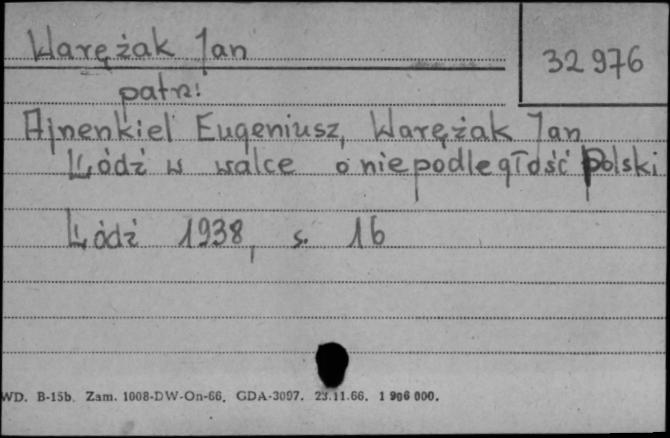 Warężak Jan
32 976
patrz:
Ajnenkiel Eugeniusz, Warężak Jan
Łódź w walce o niepodległość Polski
Łódź 1938, s. 16
WD. B-15b. Zam. 1008-DW-On-66. GDA-3097. 23.11.66. 1 906 000.